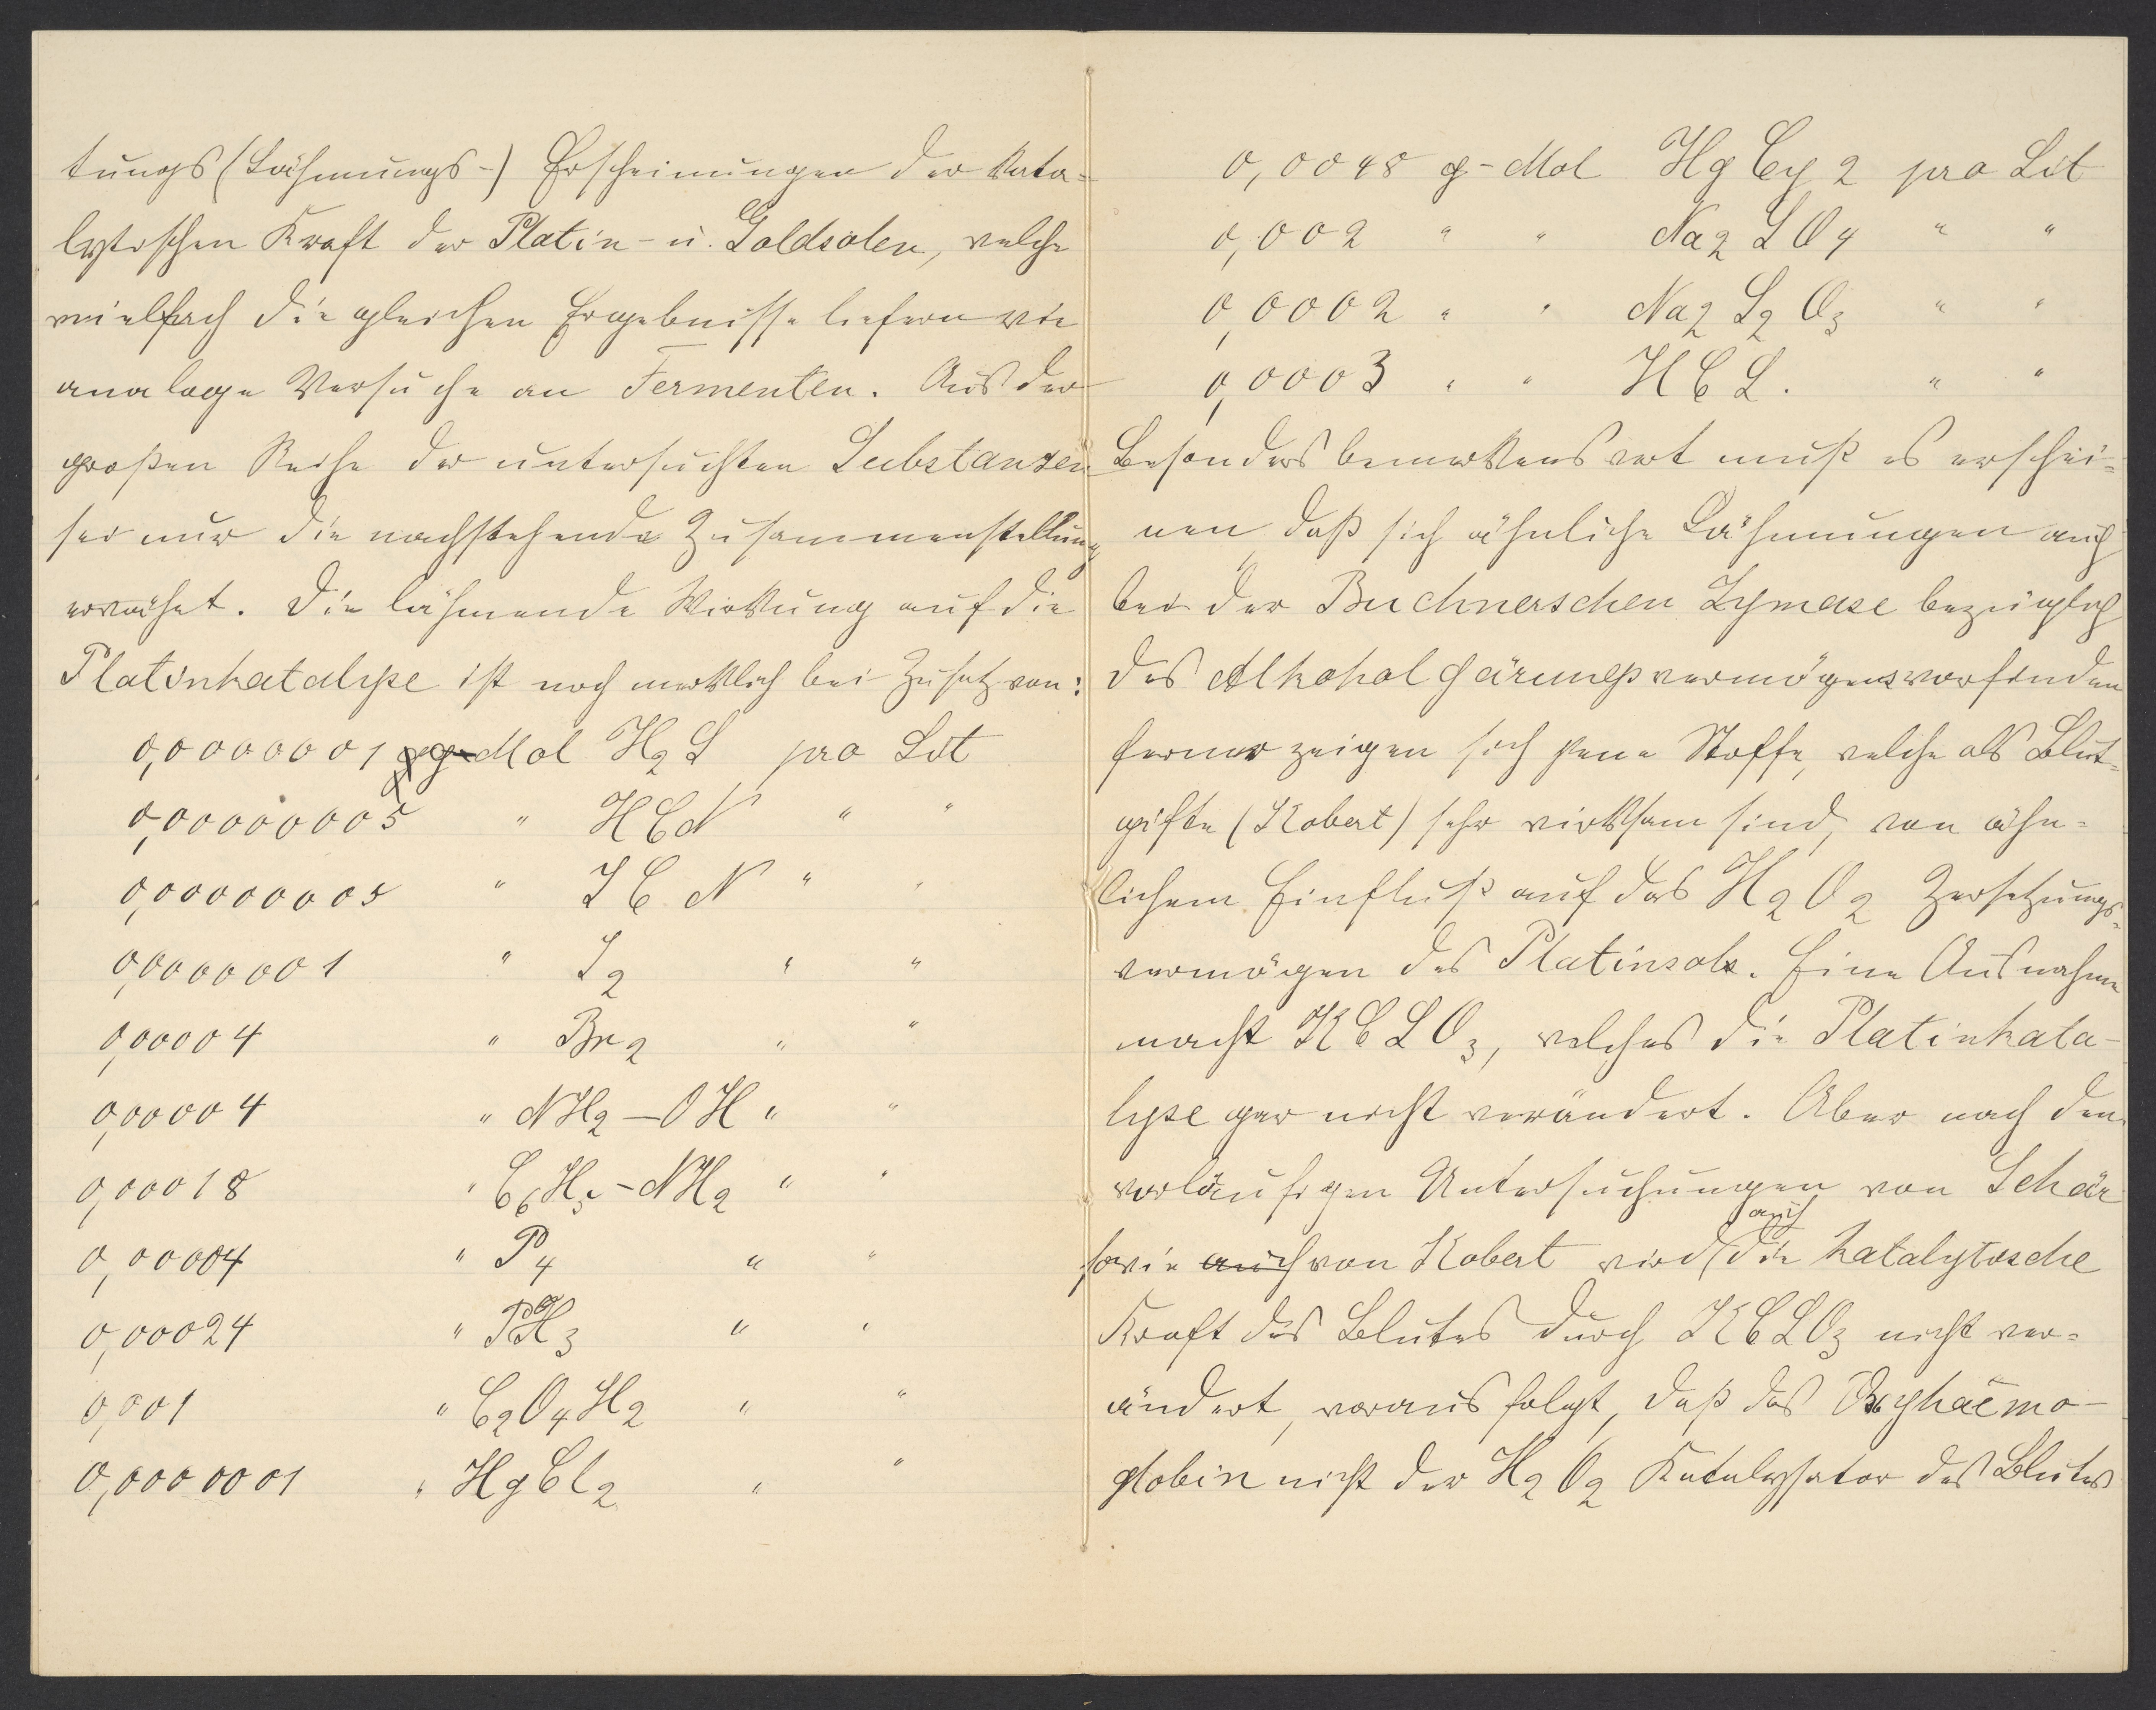 tungs (Lähmungs-) Erscheinungen der kata-
lytischen Kraft der Platin- u. Goldsolen, welche
vielfach die gleichen Ergebnisse liefern wie
analoge Versuche an Fermenten. Aus der
großen Reihe der untersuchten Substanzen
sei nur die nachstehende Zusammenstellung
erwähnt. Die lähmende Wirkung auf die
Platinkatalyse ist noch merklich bei Zusatz von:
0,0000001 g-Mol H2S pro Lit
0,000000005 " HCN " "
0,000000005 " JCN " "
0,0000001 " J2 " "
0,00004 " Br2 " "
0,00004 " NH2-OH " "
0,00018 " C6H5-NH2 " "
0,00004 " P4 " "
0,00024 " PH3 " "
0,001 " C2O4H2 " "
0,0000001 " HgCl2 " "
0,0048 g-Mol HgCy2 pro Lit
0,002 " " Na2SO4 " "
0,0002 " " Na2S2O3 " "
0,0003 " " HCL. " "
Besonders bemerkenswert muß es erschei-
nen, daß sich ähnliche Lähmungen auch
bei der Buchnerschen Zymase bezüglich
des Alkoholgärungsvermögens vorfinden
ferner zeigen sich jene Stoffe, welche als Blut-
gifte (Kobert) sehr wirksam sind, von ähn-
lichem Einfluß auf das H2O2 Zersetzungs-
vermögen des Platinsols. Eine Ausnahme
macht KCLO3, welches die Platinkata-
lyse gar nicht verändert. Aber nach den
vorläufigen Untersuchungen von Schär
sowie auch von Kobert wird auch die katalytische
Kraft des Blutes durch KCLO3 nicht ver-
ändert, woraus folgt, daß das Oxyhaemo-
globin nicht der H2O2 Katalysator des Blutes